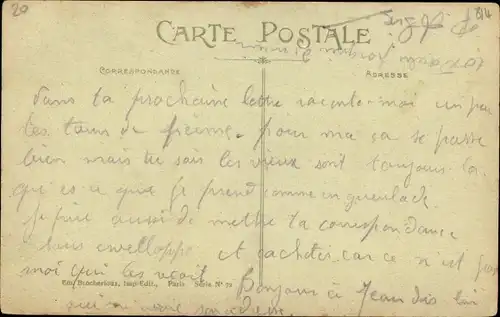 20
CARTE POSTALE
CORRESPONDANCE
ADRESSE
dans ta prochaine lettre raconte-moi un peu
les tours de pierre. pour ma ça se passe
bien mais tu sais les vieux sont toujours la
que es ce que je prend comme engeulade
je prie aussi de mettre ta correspondance
sous envelloppe et cacheter car ce n'est pas
moi qui les voit Bonjour à Jean dis lui
Imp-Edit., Paris Série No 79